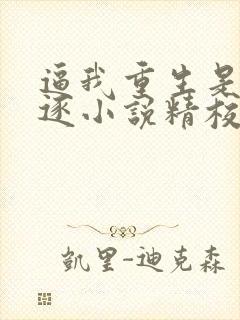 逼我重生是
逐小説精校
凱里-迪克森